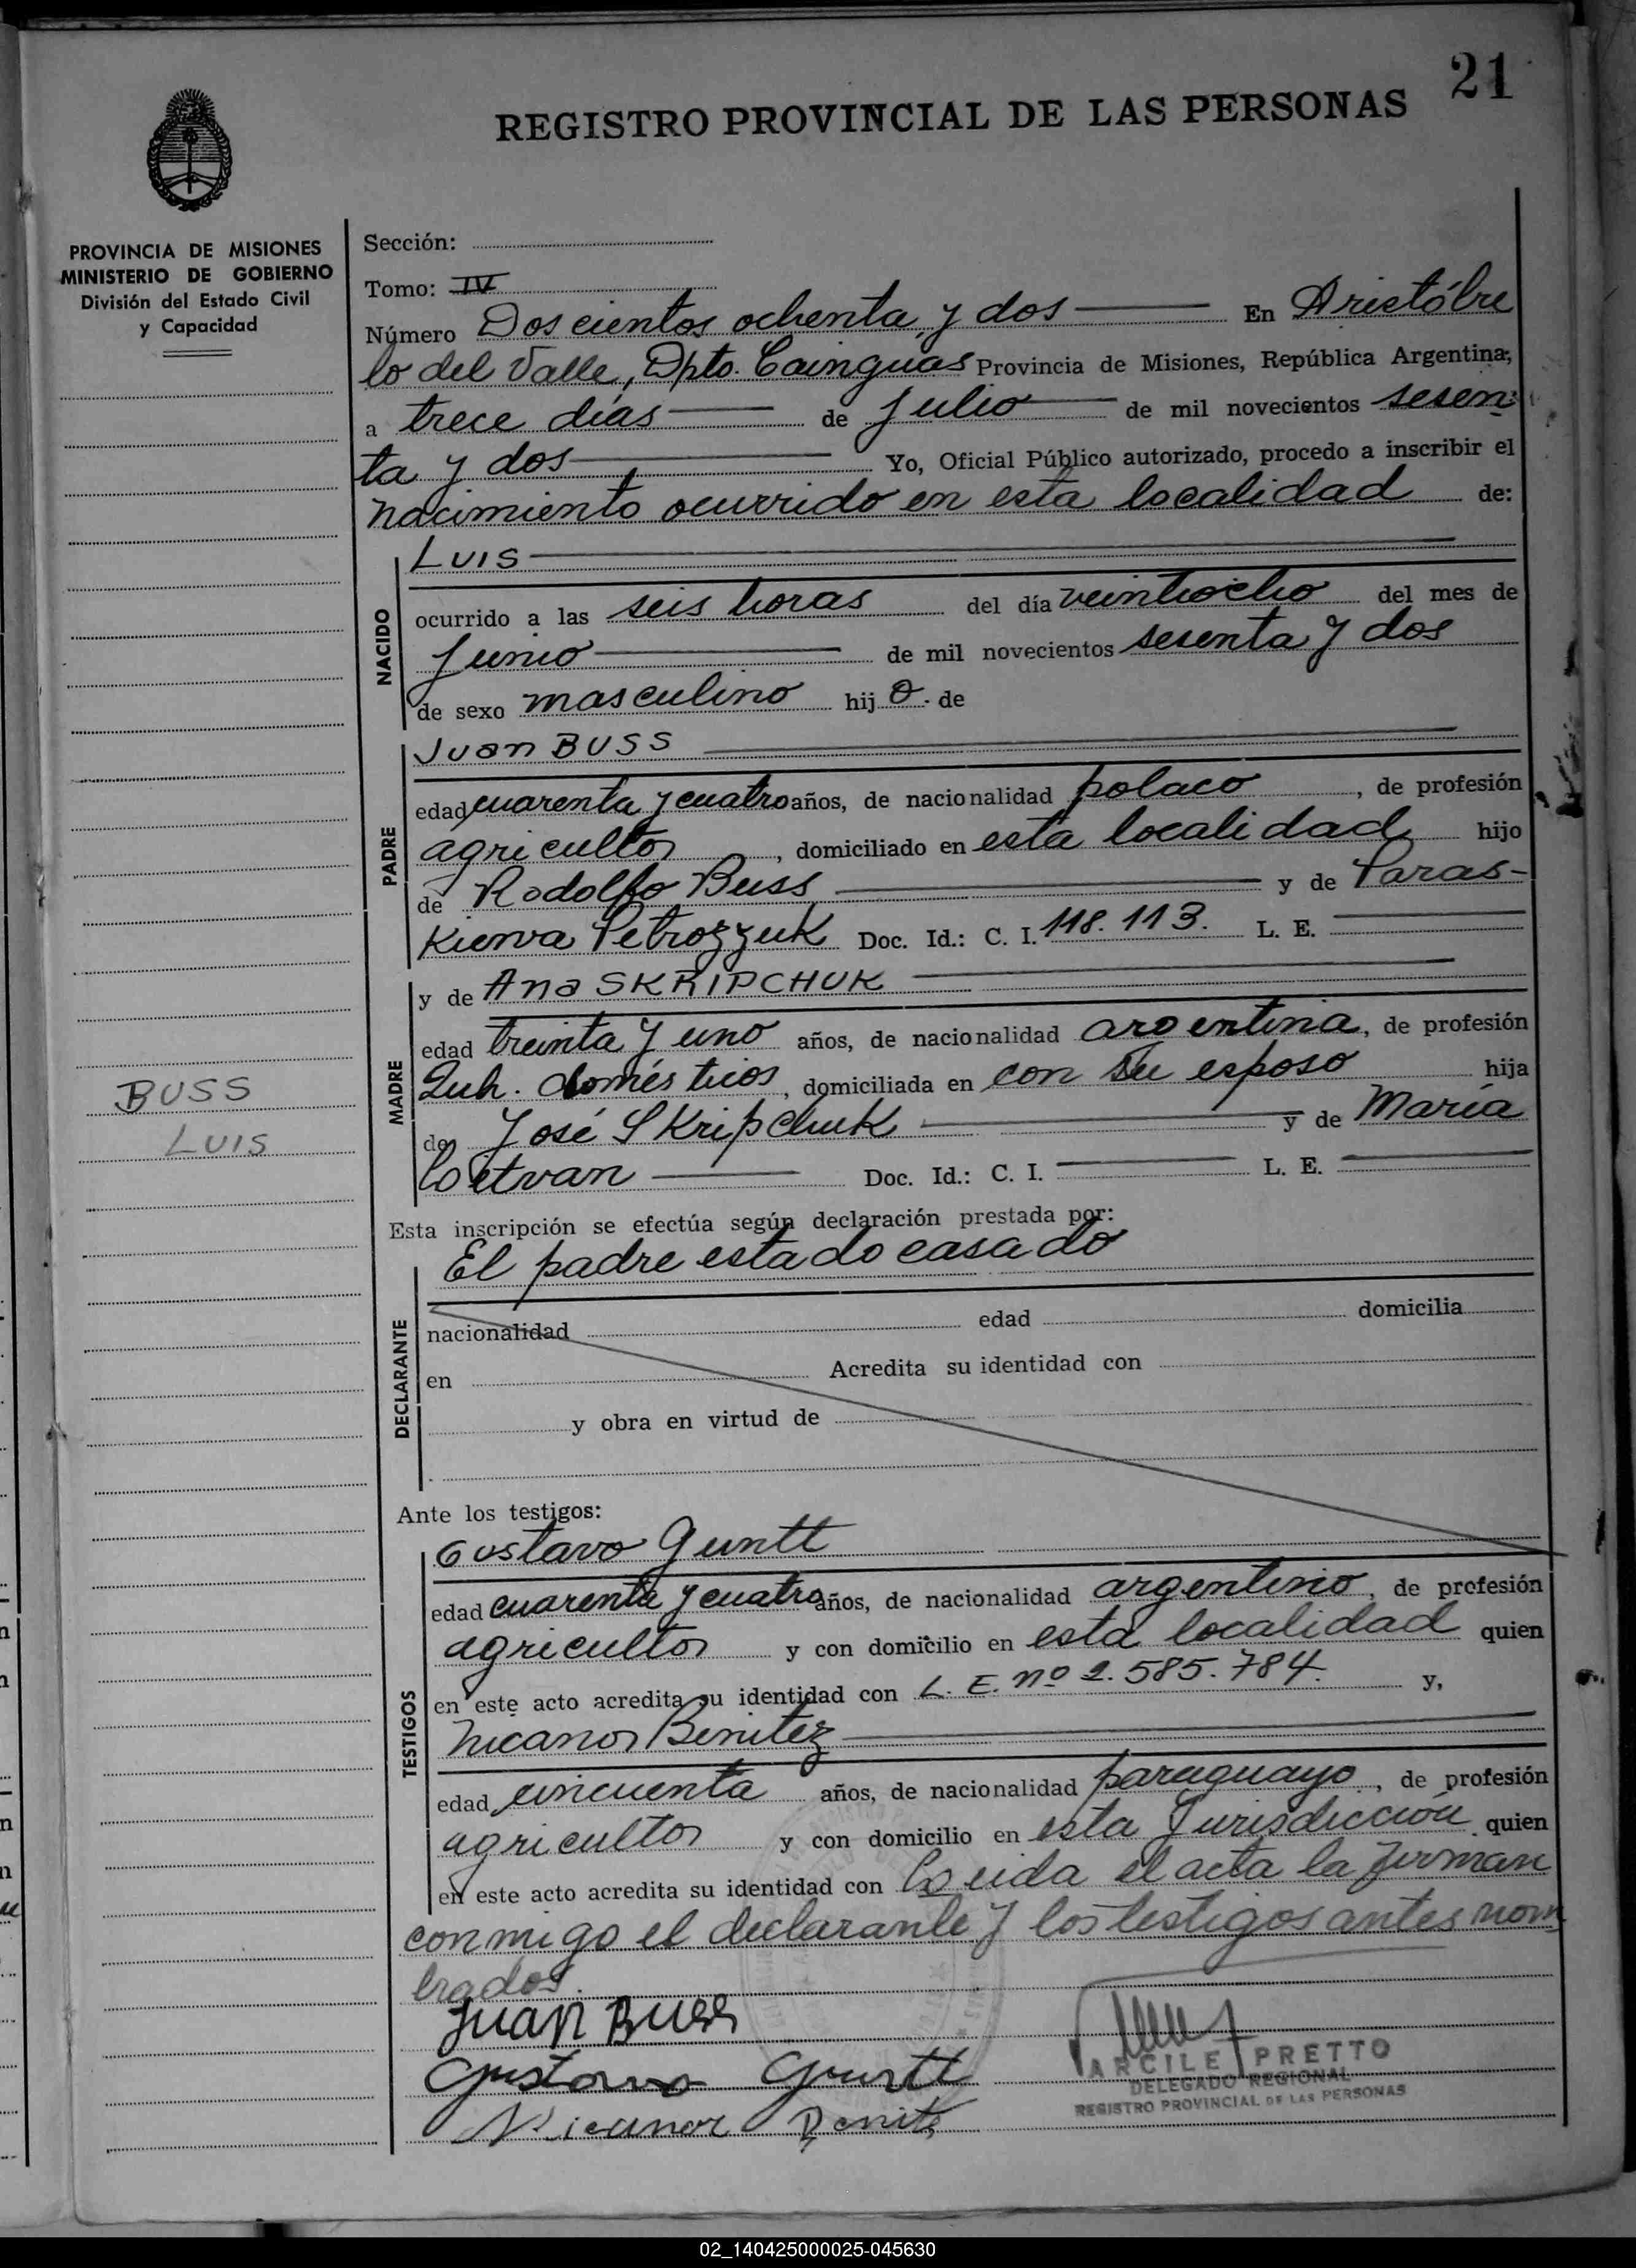 21
REGISTRO PROVINCIAL DE LAS PERSONAS
PROVINCIA DE MISIONES
MINISTERIO DE GOBIERNO
División del Estado Civil
y Capacidad
Sección:
Tomo: IV
Número Doscientos ochenta y dos En Aristóbu
lo del Valle, Dpto. Cainguás Provincia de Misiones, República Argentina,
a trece días de Julio de mil novecientos sesen
ta y dos Yo, Oficial Público autorizado, procedo a inscribir el
nacimiento ocurrido en esta localidad de:
NACIDO
LUIS
ocurrido a las seis horas del día veintiocho del mes de
Junio de mil novecientos sesenta y dos
de sexo masculino hijo de
PADRE
Juan BUSS
edad cuarenta y cuatro años, de nacionalidad polaco, de profesión
agricultor, domiciliado en esta localidad hijo
de Rodolfo Buss y de Paras-
Petrozzuk Doc. Id.: C. I. 118.113. L. E.
MADRE
y de Ana SKRIPCHUK
edad treinta y uno años, de nacionalidad argentina, de profesión
Quh. domésticos, domiciliada en con su esposo hija
BUSS
LUIS
de José Skripchuk y de María
Doc. Id.: C. I. L. E.
Esta inscripción se efectúa según declaración prestada por:
El padre estado casado
DECLARANTE
nacionalidad edad domicilia
en Acredita su identidad con
y obra en virtud de
Ante los testigos:
TESTIGOS
Gustavo Guntt
edad cuarenta y cuatro años, de nacionalidad argentino, de profesión
agricultor y con domicilio en esta localidad quien
en este acto acredita su identidad con L. E. nº 2.585.784. y,
Nicanor Benitez
edad cincuenta años, de nacionalidad paraguayo, de profesión
agricultor y con domicilio en esta Jurisdicción quien
en este acto acredita su identidad con Leida el acta la firman
conmigo el declarante y los testigos antes nom
brados.
Juan Buss
Gustavo Guntt
Nicanor Benitez
ARCILE PRETTO
DELEGADO REGIONAL
REGISTRO PROVINCIAL DE LAS PERSONAS
02_140425000025-045630